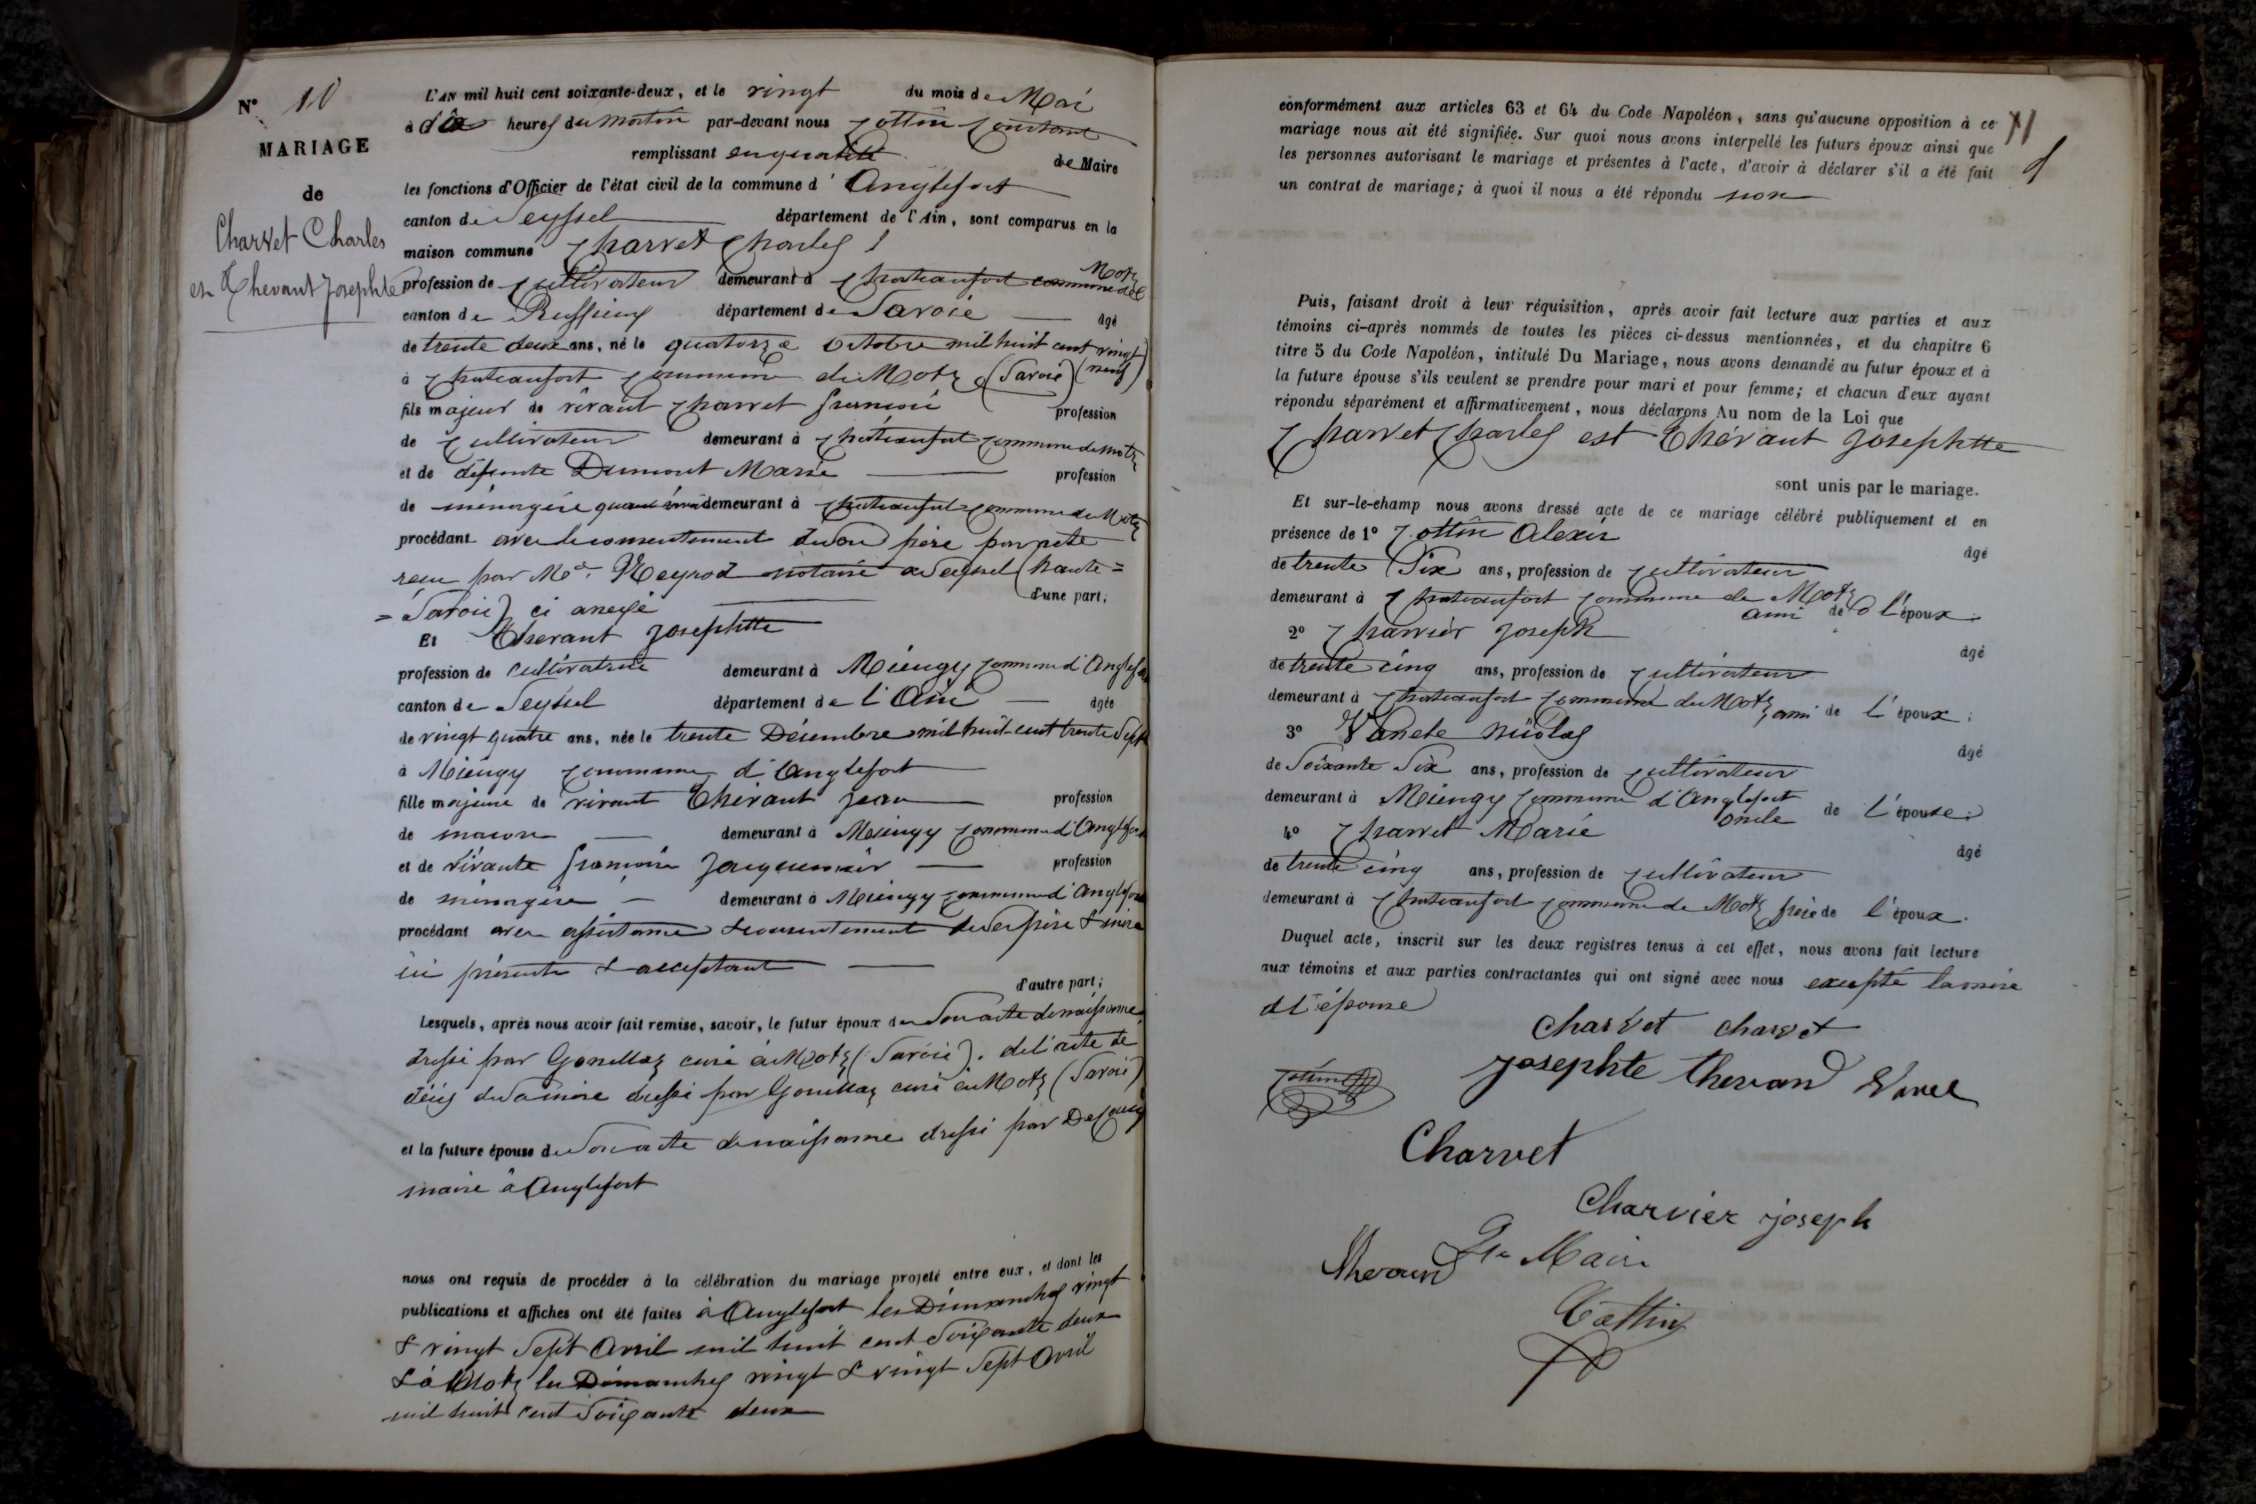 N° 10
MARIAGE
de
Charvet Charles
et Thevant Josephte
L'AN mil huit cent soixante-deux, et le vingt du mois de Mai
à dix heures du matin par-devant nous Cottin Constant
remplissant en qualité de Maire
les fonctions d'Officier de l'état civil de la commune d' Anglefort
canton de Seyssel département de l'Ain, sont comparus en la
maison commune Charvet Charles
profession de Cultivateur demeurant à Chateaufort commune de Motz
canton de Ruffieux département de Savoie âgé
de trente deux ans, né le quatorze Octobre mil huit cent vingt (neuf)
à Chateaufort Commune de Motz (Savoie)
fils majeur de vivant Charvet François profession
de Cultivateur demeurant à Châteaufort Commune de Motz
et de défunte Dumont Marie profession
de ménagère quand vivait demeurant à Chateaufort Commune de Motz
procédant avec le consentement de son père par acte
reçu par Me Reyrod notaire à Seyssel (haute=
=Savoie) ci anexé d'une part;
Et Thevant Josephtte
profession de cultivatrice demeurant à Mieugy Commune d'Anglefort
canton de Seyssel département de l'Ain âgée
de vingt quatre ans, née le trente Décembre mil huit cent trente Sept
à Mieugy Commune d'Anglefort
fille majeure de vivant Thévant Jean profession
de macon demeurant à Mieugy Commune d'Anglefort
et de vivante Françoise Jacquemier profession
de ménagère demeurant à Mieugy Commune d'Anglefort
procédant avec assistance & consentement de ses père & mère
ici présents & acceptant
d'autre part;
Lesquels, après nous avoir fait remise, savoir, le futur époux de Son acte de naissance
dressé par Gonellaz curé à Motz (Savoie). de l'acte de
décès de Sa mère dressé par Gonellaz curé à Motz (Savoie)
et la future épouse de Son acte de naissance dressé par
maire à Anglefort
nous ont requis de procéder à la célébration du mariage projeté entre eux, et dont les
publications et affiches ont été faites à Anglefort les Dimanches vingt
& vingt Sept Avril mil huit cent Soixante deux
& à Motz les Dimanches vingt & vingt Sept Avril
mil huit cent Soixante deux
conformément aux articles 63 et 64 du Code Napoléon, sans qu'aucune opposition à ce
mariage nous ait été signifiée. Sur quoi nous avons interpellé les futurs époux ainsi que
les personnes autorisant le mariage et présentes à l'acte, d'avoir à déclarer s'il a été fait
un contrat de mariage; à quoi il nous a été répondu non
Puis, faisant droit à leur réquisition, après avoir fait lecture aux parties et aux
témoins ci-après nommés de toutes les pièces ci-dessus mentionnées, et du chapitre 6
titre 5 du Code Napoléon, intitulé Du Mariage, nous avons demandé au futur époux et à
la future épouse s'ils veulent se prendre pour mari et pour femme; et chacun d'eux ayant
répondu séparément et affirmativement, nous déclarons Au nom de la Loi que
Charvet Charles est Thévant Josephtte
sont unis par le mariage.
Et sur-le-champ nous avons dressé acte de ce mariage célébré publiquement et en
présence de 1° Cottin Alexis âgé
de trente Six ans, profession de Cultivateur
demeurant à Chateaufort Commune de Motz ami de l'époux
2° Charvier Joseph âgé
de trente cinq ans, profession de Cultivateur
demeurant à Chateaufort Commune de Motz ami de l'époux;
3° Nicolas âgé
de Soixante Six ans, profession de Cultivateur
demeurant à Mieugy Commune d'Anglefort oncle de l'épouse;
4° Charvet Marie âgé
de trente cinq ans, profession de Cultivateur
demeurant à Chateaufort Commune de Motz frère de l'époux.
Duquel acte, inscrit sur les deux registres tenus à cet effet, nous avons fait lecture
aux témoins et aux parties contractantes qui ont signé avec nous excepté la mère
d l'épouse
Charvet charvet
Josephte thevand
Cottin
Charvet
Charvier joseph
Thevand Le Maire
Cottin